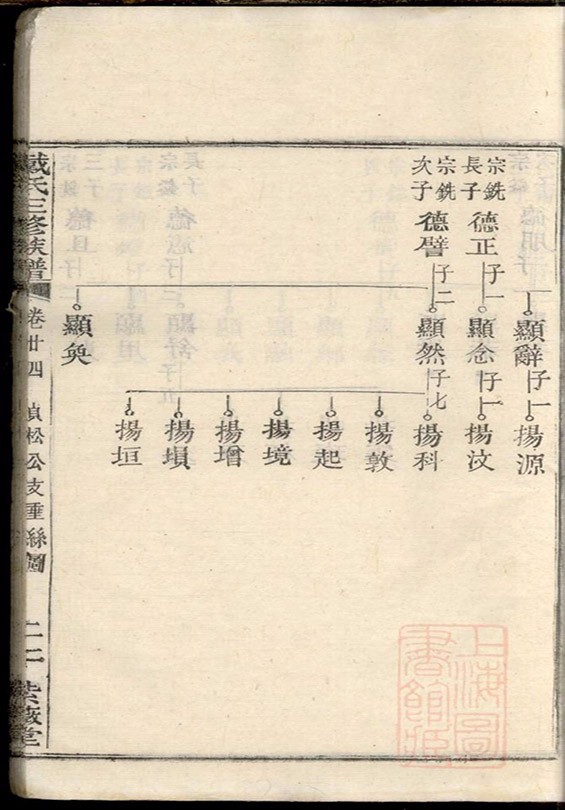 顯辭 子一 揚源
宗銑長子 德正 子一 顯念 子一 揚汶
宗銑次子 德譬 子二 顯然 子七 揚科
揚敦
揚起
揚境
揚增
揚塤
揚垣
顯奐
戴氏三修族譜 卷廿四 貞松公支垂絲圖 二十一 紫薇堂
上海圖書館藏